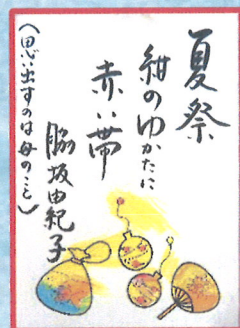 夏祭
紺のゆかたに
赤い帯
脇坂由紀子
(思い出すのは母のこと)